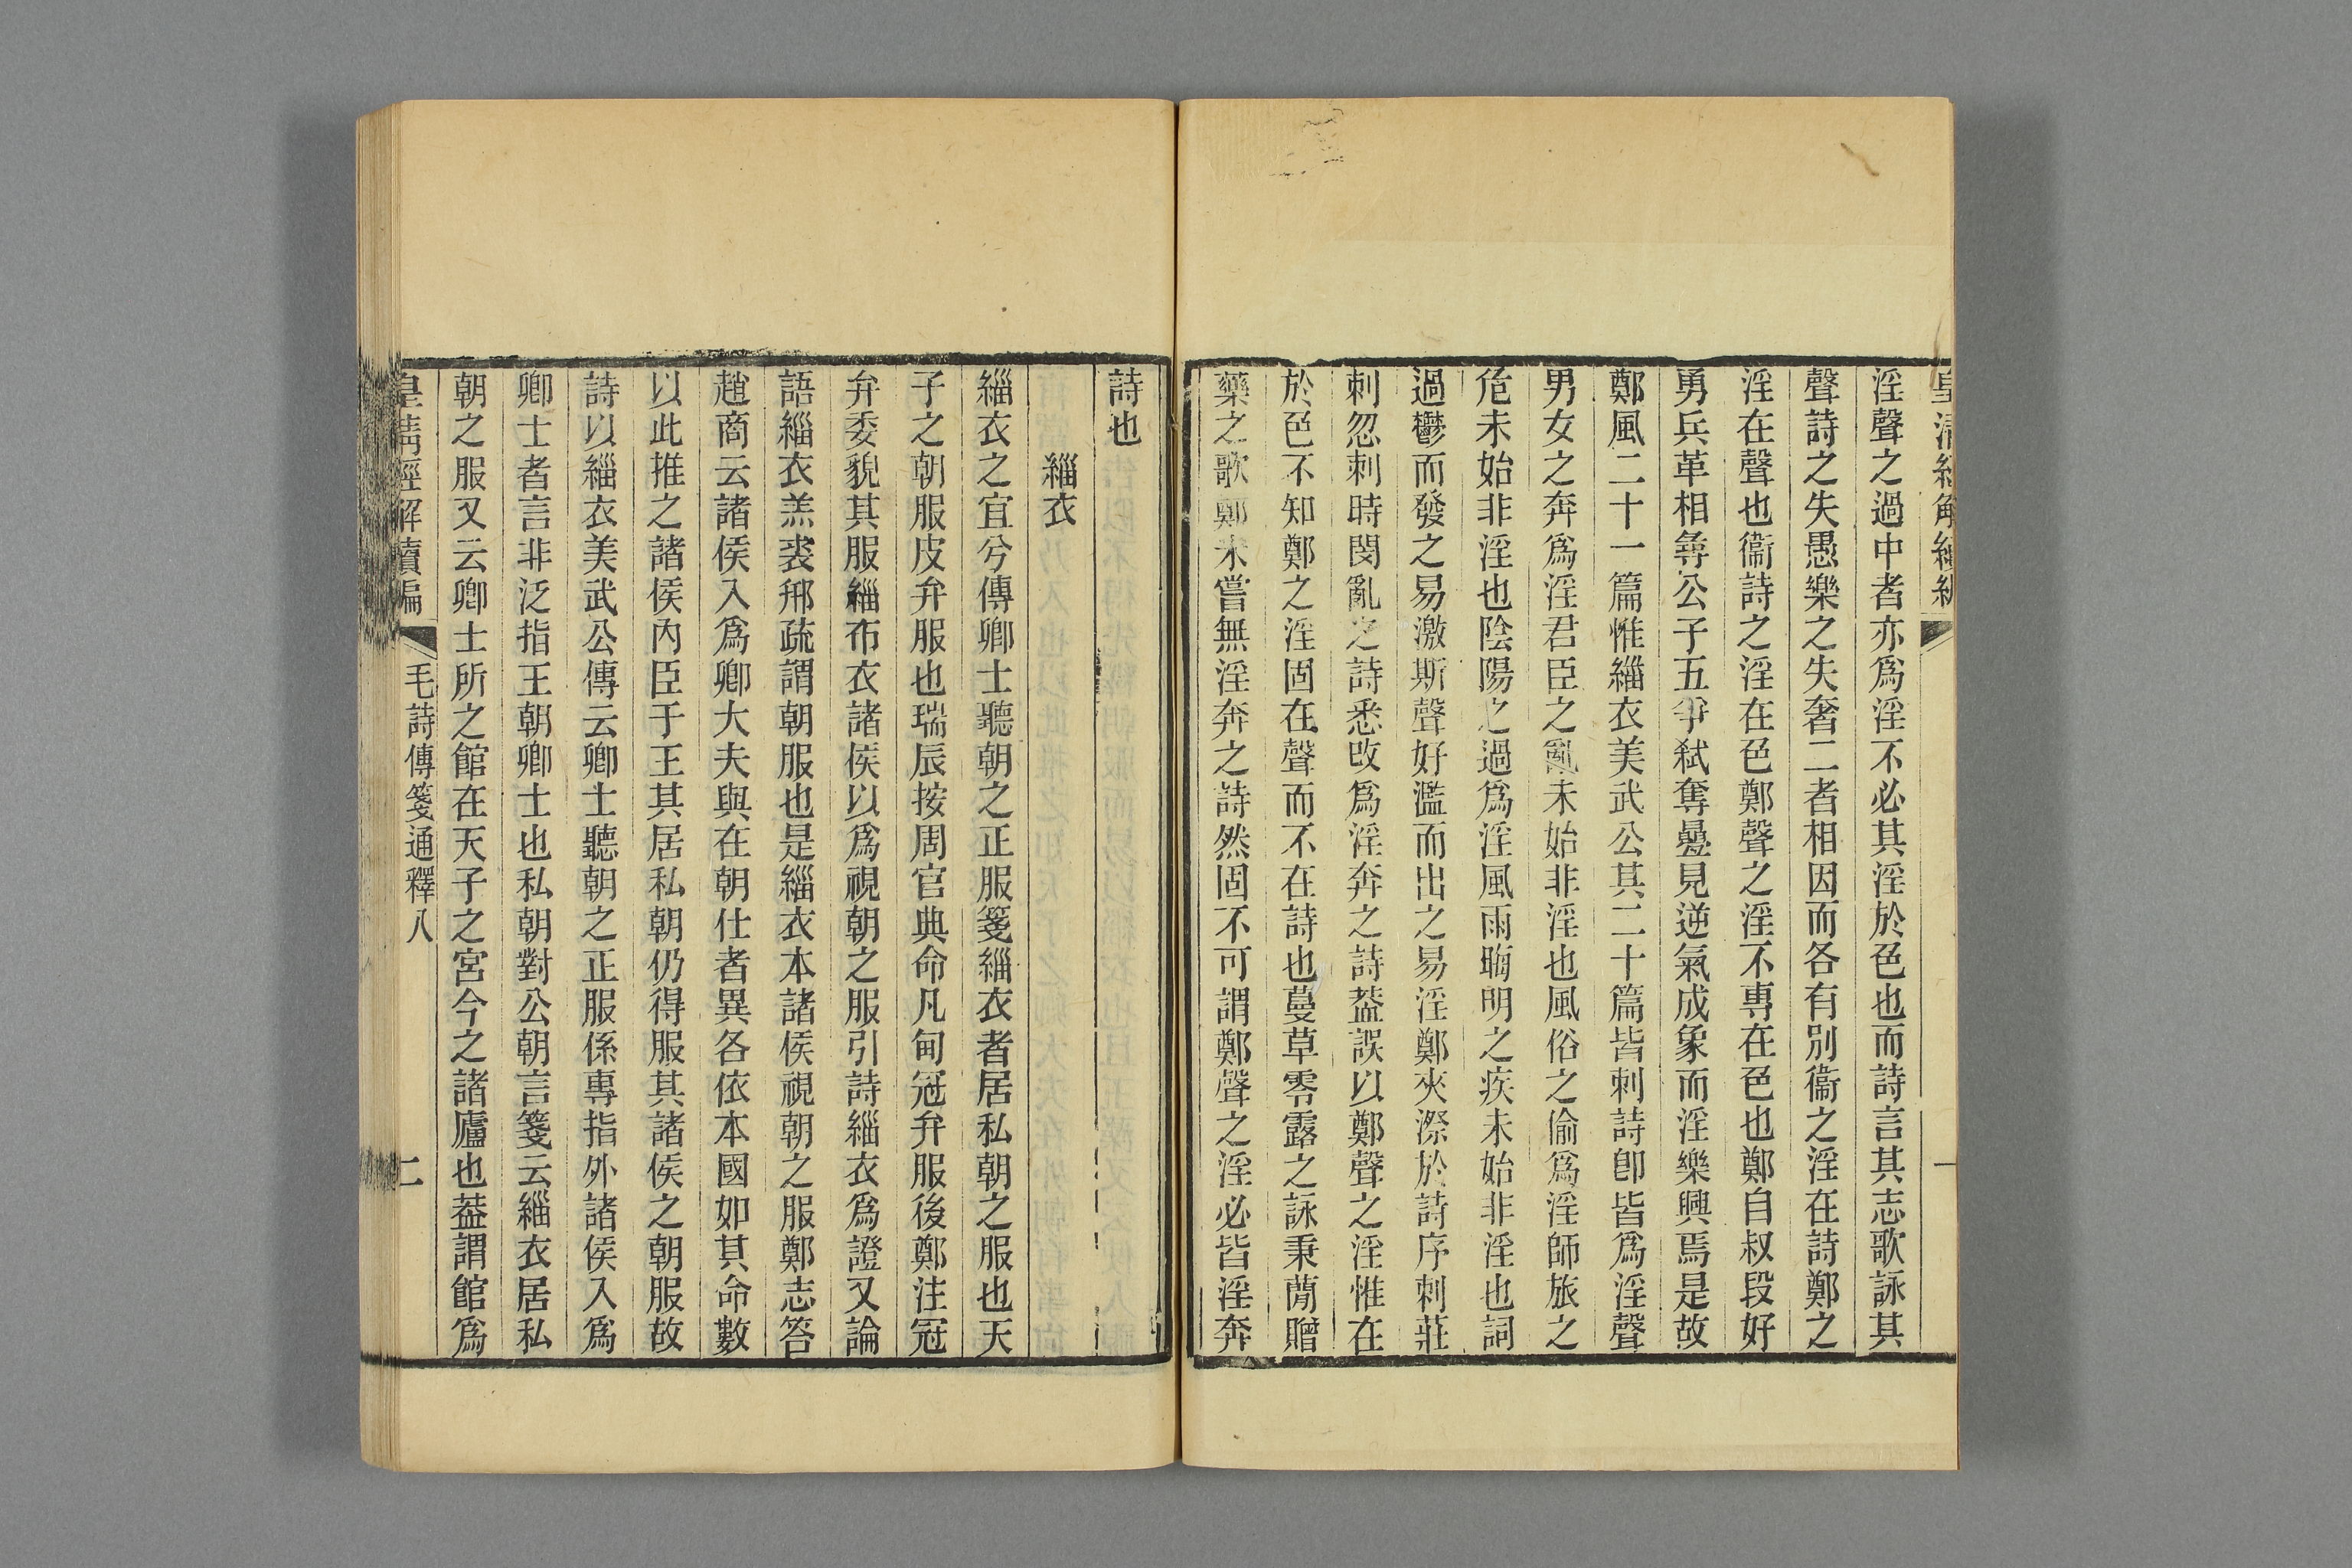 淫聲之過中者亦爲淫不必其淫於色也而詩言其志歌詠其
聲詩之失愚樂之失奢二者相因而各有別衞之淫在詩鄭之
淫在聲也衞詩之淫在色鄭聲之淫不專在色也鄭自叔段好
勇兵革相尋公子五爭弑奪疊見逆氣成象而淫樂興焉是故
鄭風二十一篇惟緇衣美武公其二十篇皆刺詩卽皆爲淫聲
男女之奔爲淫君臣之亂未始非淫也風俗之偷爲淫師旅之
危未始非淫也陰陽之過爲淫風雨晦明之疾未始非淫也詞
過鬱而發之易激斯聲好濫而出之易淫鄭夾漈於詩序刺莊
刺忽刺時閔亂之詩悉改爲淫奔之詩葢誤以鄭聲之淫惟在
於色不知鄭之淫固在聲而不在詩也蔓草零露之詠秉蕑贈
藥之歌鄭未嘗無淫奔之詩然固不可謂鄭聲之淫必皆淫奔
詩也
緇衣
緇衣之宜兮傳卿士聽朝之正服箋緇衣者居私朝之服也天
子之朝服皮弁服也瑞辰按周官典命凡甸冠弁服後鄭注冠
弁委貌其服緇布衣諸侯以爲視朝之服引詩緇衣爲證又論
語緇衣羔裘邢疏謂朝服也是緇衣本諸侯視朝之服鄭志答
趙商云諸侯入爲卿大夫與在朝仕者異各依本國如其命數
以此推之諸侯內臣于王其居私朝仍得服其諸侯之朝服故
詩以緇衣美武公傳云卿士聽朝之正服係專指外諸侯入爲
卿士者言非泛指王朝卿士也私朝對公朝言箋云緇衣居私
朝之服又云卿士所之館在天子之宮今之諸廬也葢謂館爲
皇清經解續編
毛詩傳箋通釋八
二